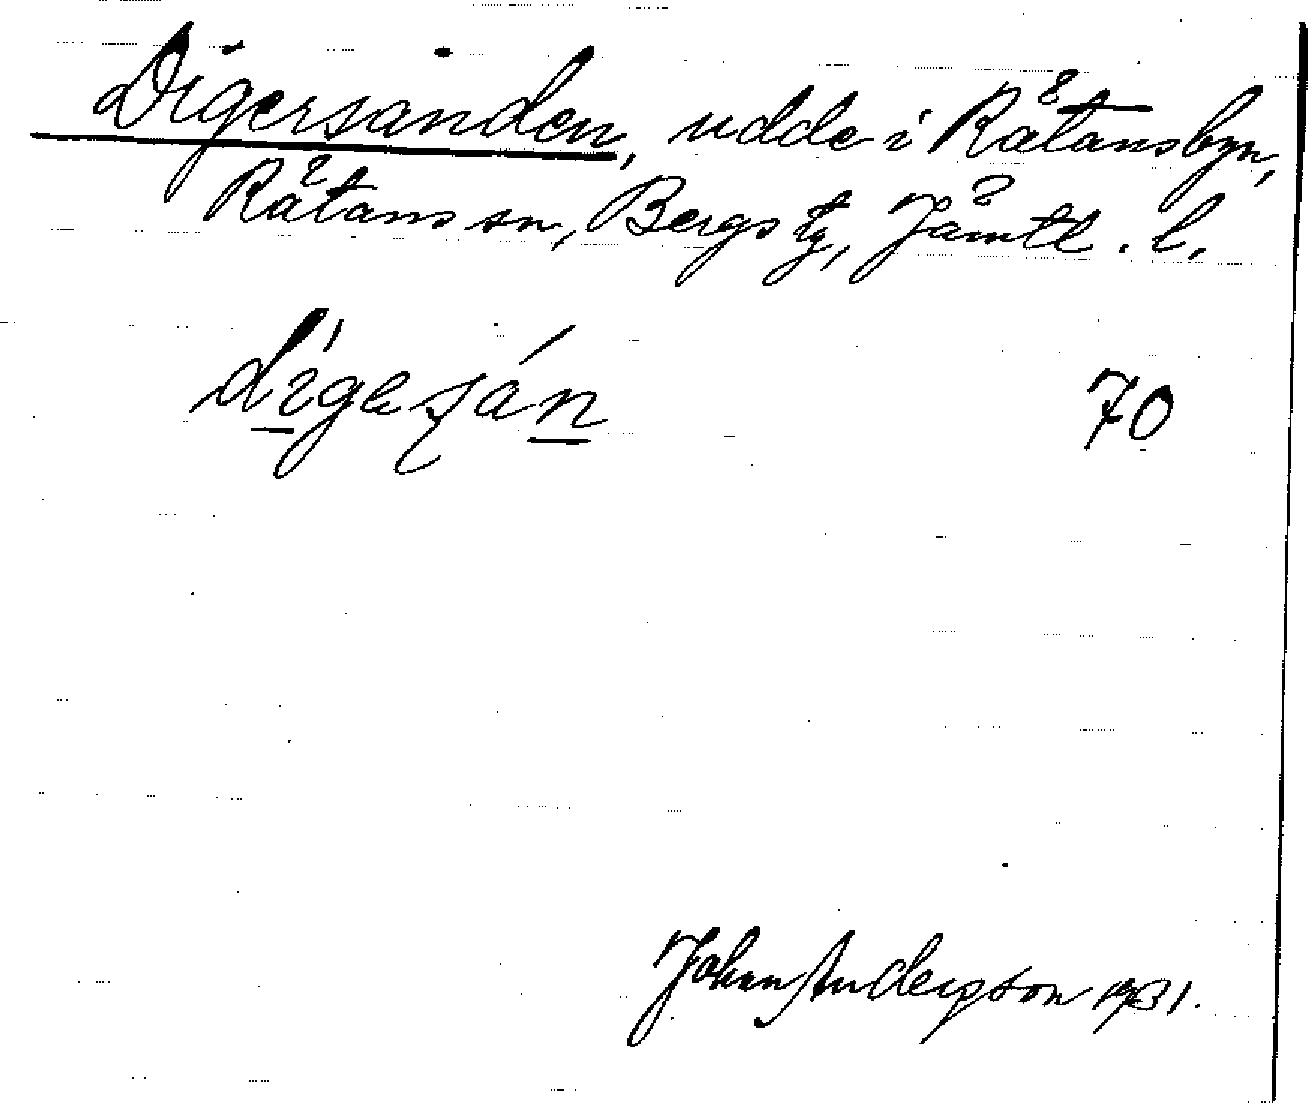 Digersanden, udde i Rätansbyn,
Rätans sn, Bergs tg, Jämtl. l.
70
Johan Anderson 1931.